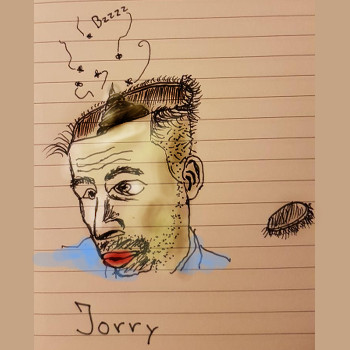 Bzzzz
Jorry